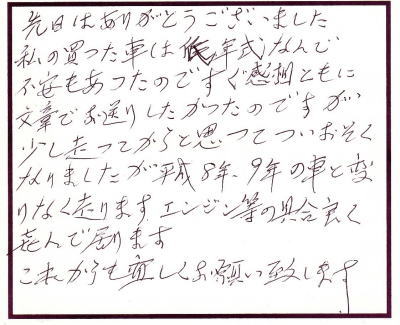 先日はありがとうございました
私の買った車は低年式なんで
不安もあったのですぐ感想ともに
文章でお送りしたかったのですが
少し走ってからと思ってついおそく
なりましたが平成8年、9年の車と変
りなく走ります、エンジン等の具合良く
喜んで居ります
これからも宜しくお願い致します